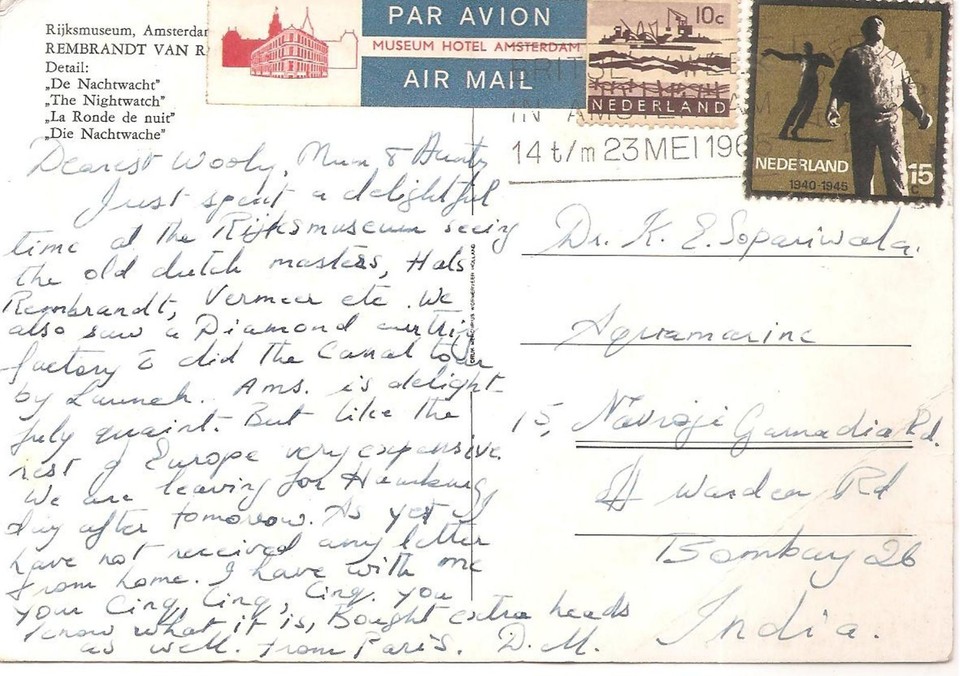 Rijksmuseum, Amsterda
REMBRANDT VAN R
Detail:
„De Nachtwacht"
„The Nightwatch"
„La Ronde de nuit"
„Die Nachtwache"
PAR AVION
MUSEUM HOTEL AMSTERDAM
AIR MAIL
10c
NEDERLAND
NEDERLAND
1940-1945
15
c
IN AMSTERDAM
14 t/m 23 MEI 196
Dearest Wooly, Mum & Aunty
Just spent a delightful
time at the Rijksmuseum seeing
the old dutch masters, Hals
Rembrandt, Vermeer etc. We
also saw a Diamond cutting
factory & did the Canal tour
by Launch. Ams. is delight-
fully quaint. But like the
rest of Europe very expensive.
We are leaving for Hamburg
day after tomorrow. As yet I
have not received any letter
from home. I have with me
your Cinq, Cinq, Cinq. You
know what it is, Bought extra heads
as well. From Paris. D.M.
Dr. K. E. Sopariwala.
Aquamarine
15, Navroji Gamadia Rd.
Warden Rd
Bombay 26
India.